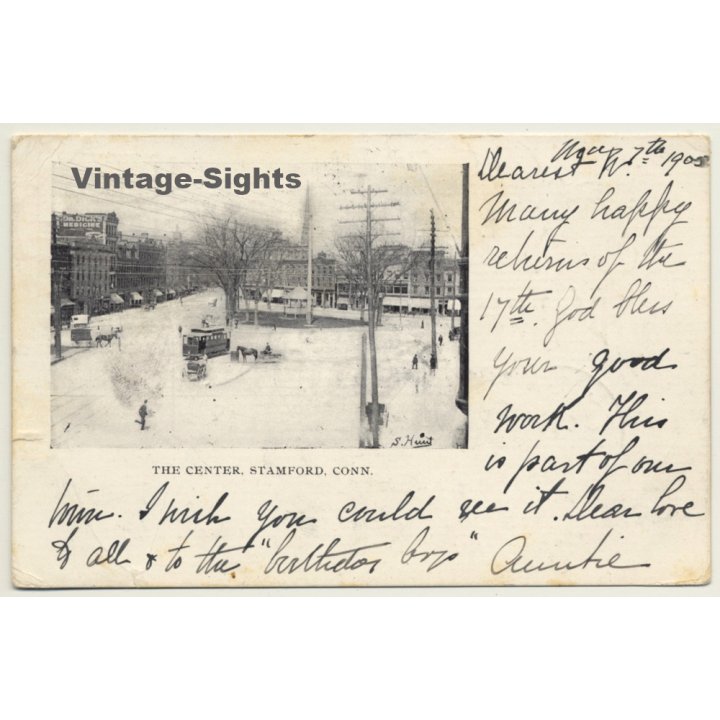 Vintage-Sights
DR. DICK'S
MEDICINE
S. Hunt
THE CENTER, STAMFORD, CONN.
7th 1905
Dearest W.
Many happy
returns of the
17th. God bless
your good
work. This
is part of our
town. I wish you could see it. Dear love
to all & to the "birthday boys" Auntie